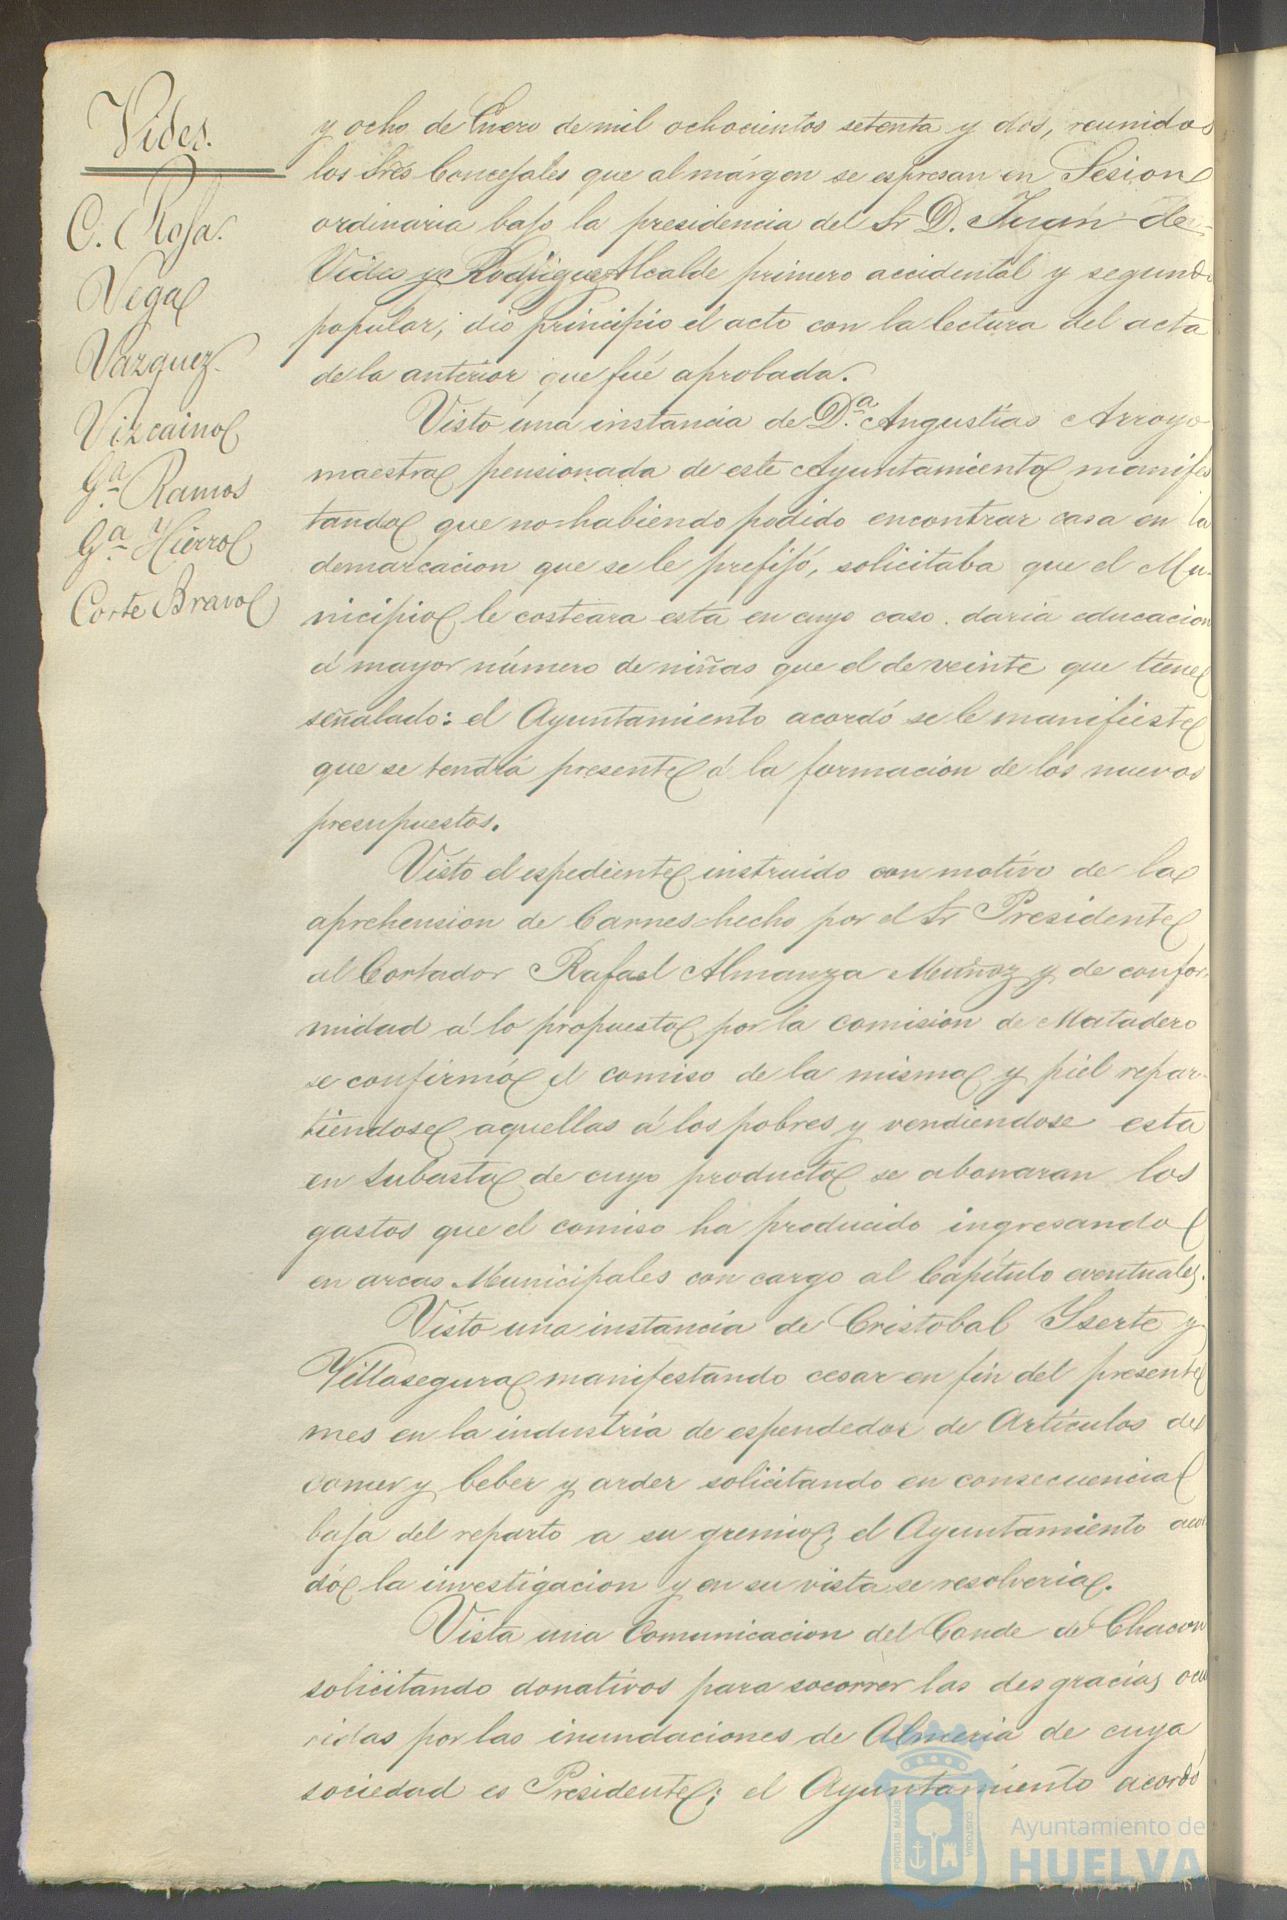 Vides.
C. Rosa.
Vega
Vazquez.
Vizcaino
Gª Ramos
Gª Hierro
Corte Bravo
y ocho de Enero de mil ochocientos setenta y dos, reunidos
los Sres Concejales que al márgen se espresan en Sesion
ordinaria bajo la presidencia del Sr D. Juan de
Vides y Rodriguez Alcalde primero accidental y segundo
popular, dió principio el acto con la lectura del acta
de la anterior que fué aprobada.
Visto una instancia de Dª Angustias Arroyo
maestra pensionada de este Ayuntamiento manifes
tando que no habiendo podido encontrar casa en la
demarcacion que se le prefijó, solicitaba que el Mu-
nicipio le costeara esta en cuyo caso daria educacion
á mayor número de niñas que el de veinte que tiene
señalado: el Ayuntamiento acordó se le manifieste
que se tendrá presente á la formacion de los nuevos
presupuestos.
Visto el espediente instruido con motivo de la
aprehension de Carnes hecho por el Sr Presidente
al Cortador Rafael Almanza Muñoz y de confor-
midad á lo propuesto por la comision de Matadero
se confirmó el comiso de la misma y piel repar-
tiendose aquellas á los pobres y vendiendose esta
en subasta de cuyo producto se abonaran los
gastos que el comiso ha producido ingresando
en arcas Municipales con cargo al Capítulo eventuales.
Visto una instancia de Cristobal Yserte y
Villasegura manifestando cesar en fin del presente
mes en la industria de espendedor de Artículos de
comer y beber y arder solicitando en consecuencia
baja del reparto a su gremio; el Ayuntamiento acor
dó la investigacion y en su vista se resolveria.
Vista una Comunicacion del Conde de Chacon
solicitando donativos para socorrer las desgracias ocu
ridas por las inundaciones de Almeria de cuya
sociedad es Presidente; el Ayuntamiento acordó
PORTUS MARIS
CUSTODIA
Ayuntamiento de
HUELVA